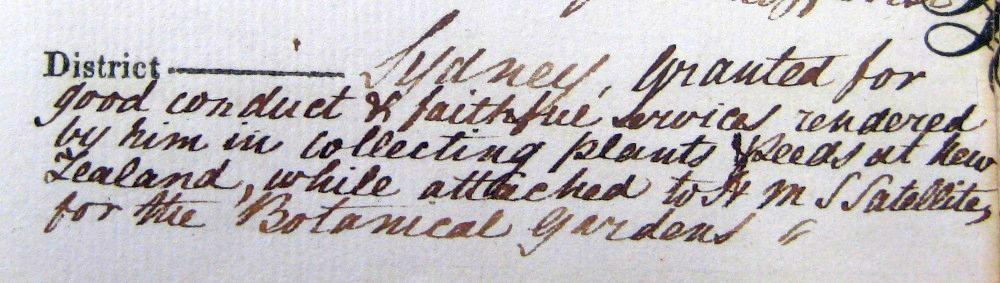 District — Sydney, granted for
good conduct & faithful services rendered
by him in collecting plants & seeds at New
Zealand, while attached to H M S Satellite,
for the Botanical Gardens "